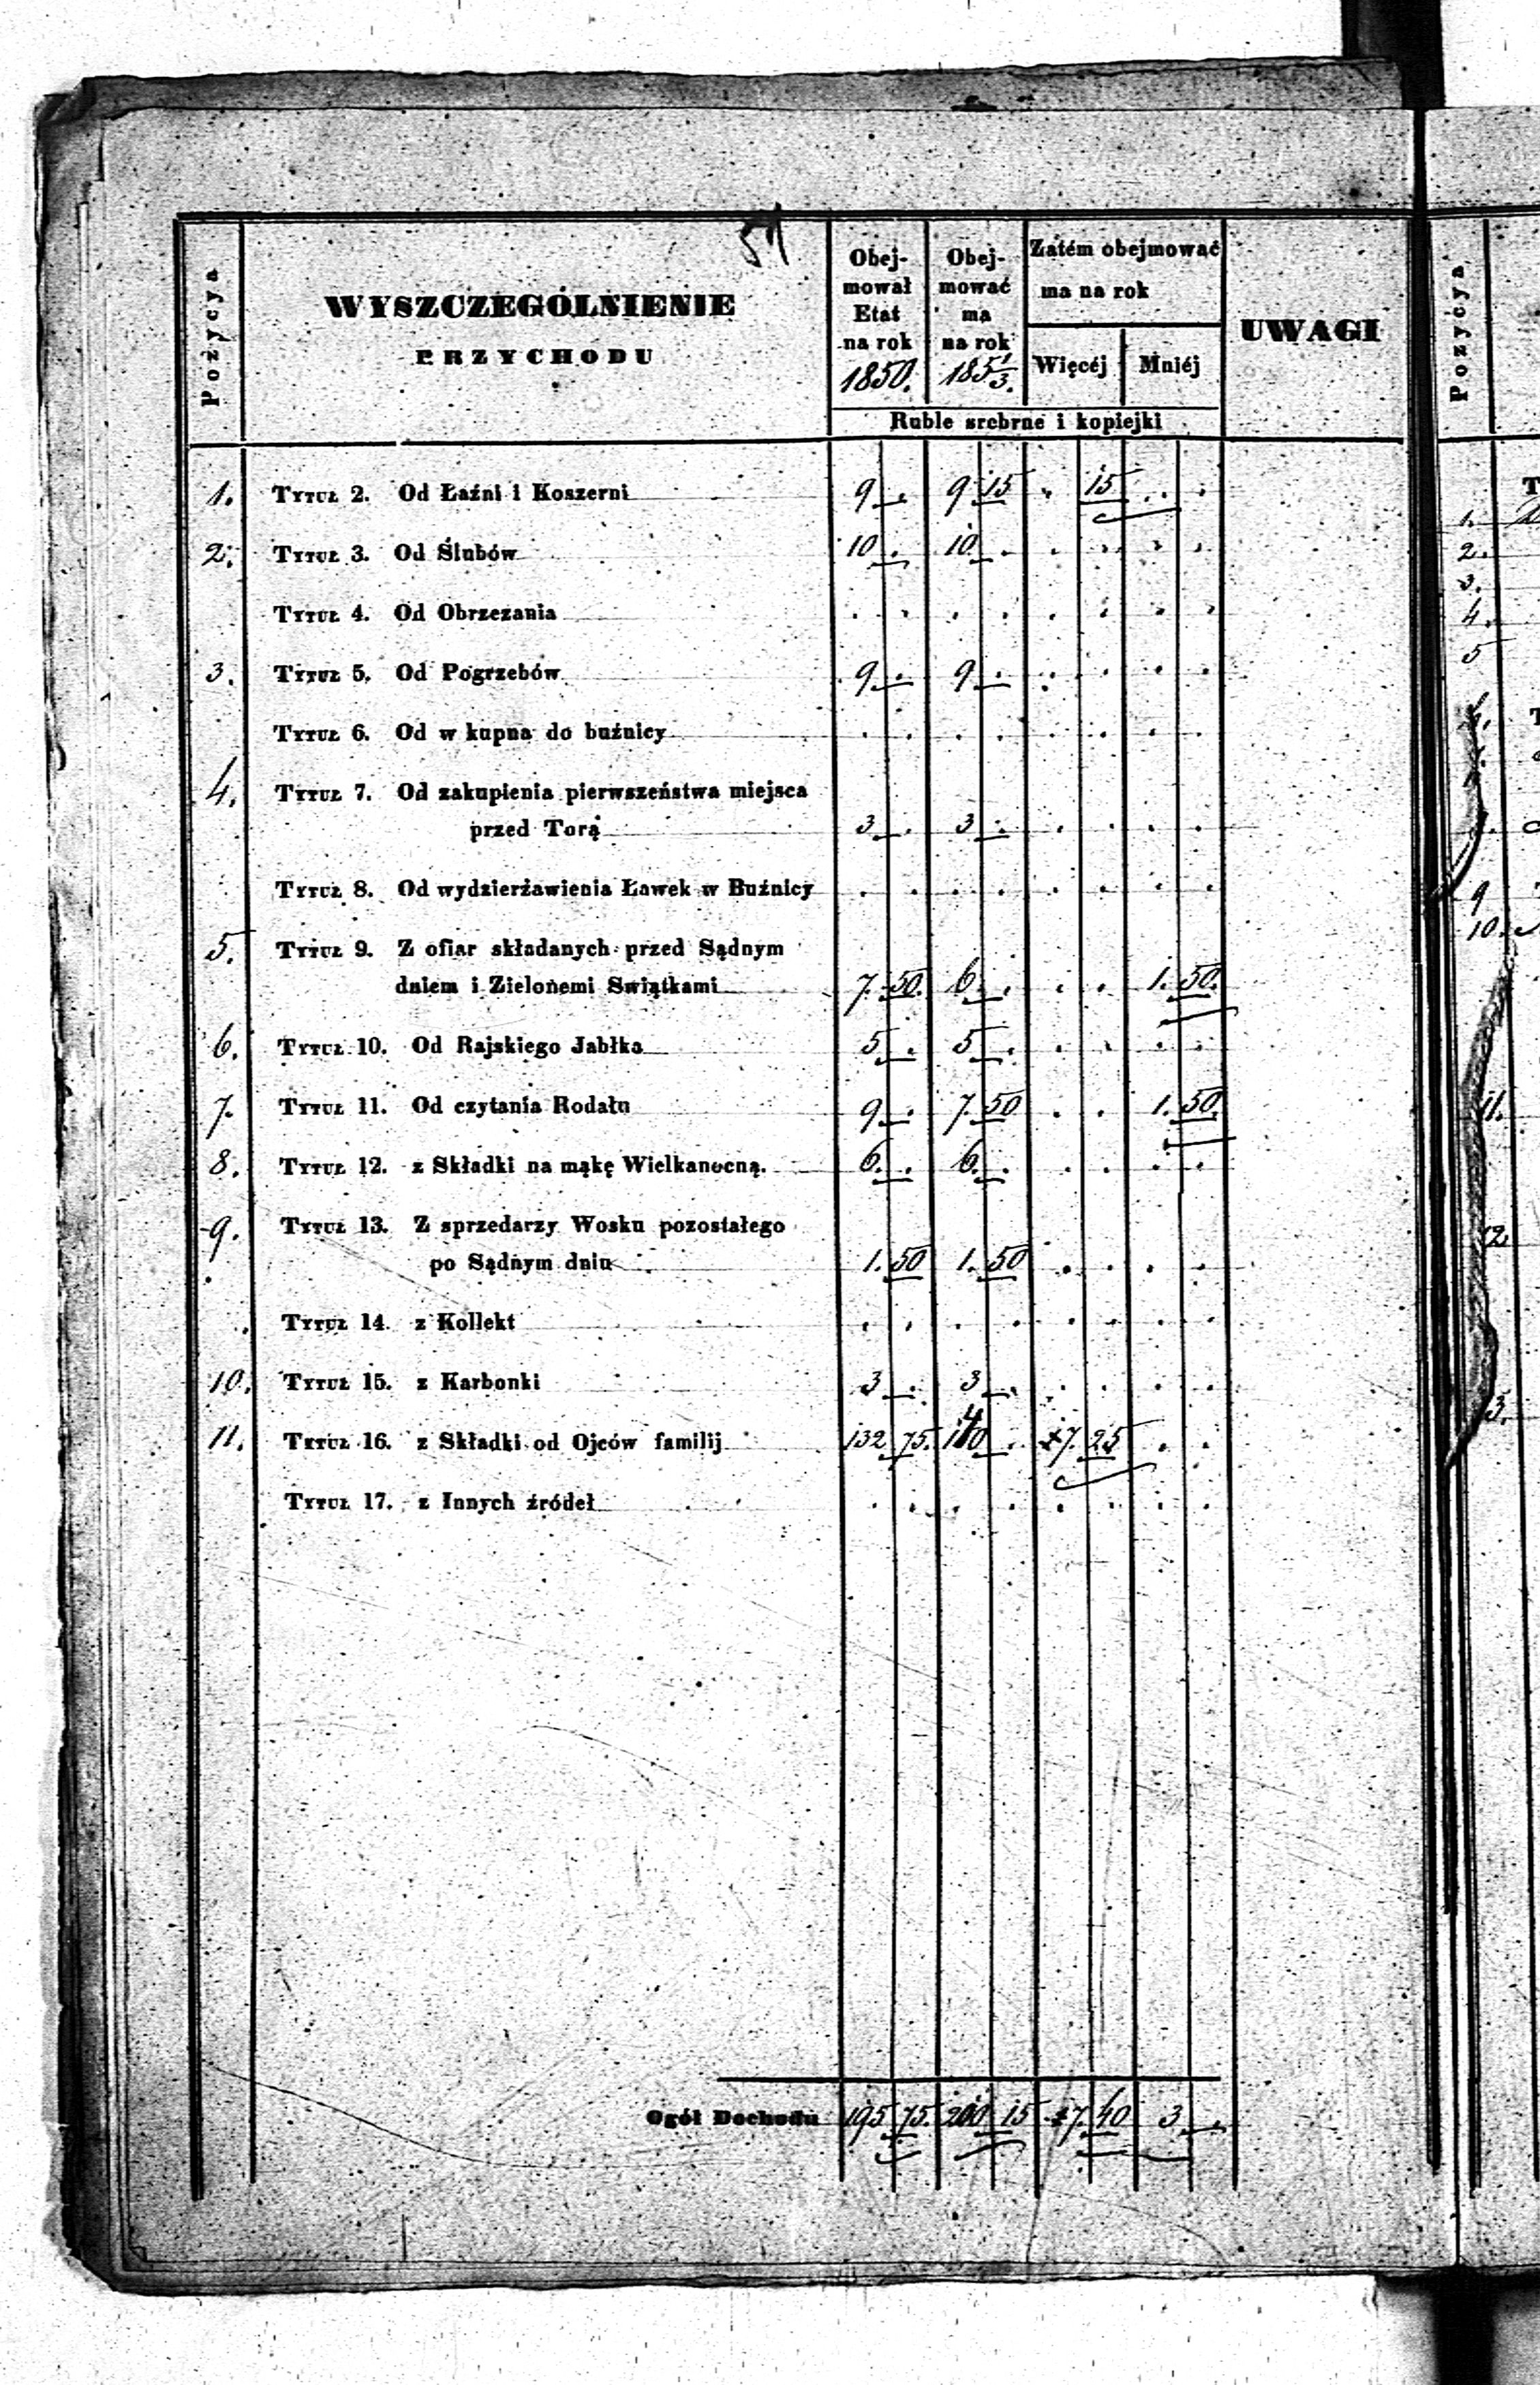 54
Pozycya
WYSZCZEGÓLNIENIE
PRZYCHODU
Obej-
mował
Etat
na rok
1850.
Obej-
mować
ma
na rok
185 1/3.
Zatém obejmować
ma na rok
Więcéj
Mniéj
UWAGI
Ruble srebrne i kopiejki
1. Tytuł 2. Od Łaźni i Koszerni 9 . 9 15 . 15 . .
2. Tytuł 3. Od Ślubów 10 . 10 . . . . .
Tytuł 4. Od Obrzezania . . . . . . . .
3. Tytuł 5. Od Pogrzebów 9 . 9 . . . . .
Tytuł 6. Od w kupna do buźnicy . . . . . . . .
4. Tytuł 7. Od zakupienia pierwszeństwa miejsca
przed Torą 3 . 3 . . . . .
Tytuł 8. Od wydzierżawienia Ławek w Buźnicy . . . . . . . .
5. Tytuł 9. Z ofiar składanych przed Sądnym
dniem i Zielonemi Swiątkami 7. 50. 6. . . . 1. 50.
6. Tytuł 10. Od Rajskiego Jabłka 5 . 5 . . . . .
7. Tytuł 11. Od czytania Rodału 9 . 7. 50 . . 1. 50.
8. Tytuł 12. z Składki na mąkę Wielkanocną. 6. . 6. . . . . .
9. Tytuł 13. Z sprzedarzy Wosku pozostałego
po Sądnym dniu 1. 50 1. 50 . . . .
Tytuł 14. z Kollekt . . . . . . . .
10. Tytuł 15. z Karbonki 3 . 3 . . . . .
11. Tytuł 16. z Składki od Ojców familij 132 75. 140 . 7. 25 . .
Tytuł 17. z Innych źródeł . . . . . . . .
Ogół Dochodu 195 75. 200 15 7. 40 3 .
Pozycya
1.
2.
3.
4.
5
9
10.
11.
12